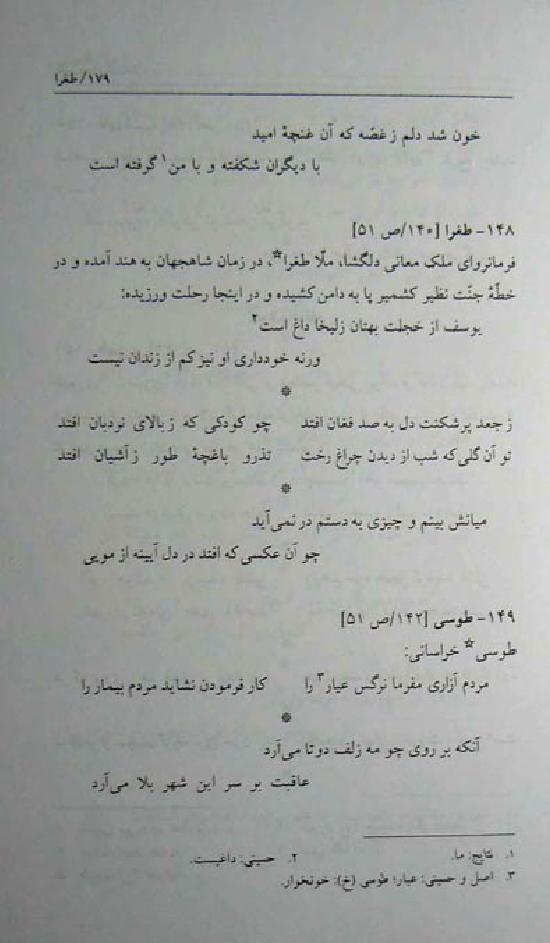 ۱۷۹/ طغرا
خون شد دلم ز غصّه که آن غنچهٔ امید
با دیگران شکفته و با من۱ گرفته است
۱۴۸- طغرا [۱۴۰/ص ۵۱]
فرمانروای ملک معانی دلگشا، ملّا طغرا*، در زمان شاهجهان به هند آمده و در
خطّهٔ جنّت نظیر کشمیر پا به دامن کشیده و در اینجا رحلت ورزیده:
یوسف از خجلت بهتان زلیخا داغ است۲
ورنه خودداری او نیز کم از زندان نیست
*
ز جعد پرشکنت دل به صد فغان افتد چو کودکی که ز بالای نردبان افتد
تو آن گلی که شب از دیدن چراغ رخت تذرو باغچهٔ طور ز آشیان افتد
*
میانش بینم و چیزی به دستم در نمی‌آید
چو آن عکسی که افتد در دل آیینه از مویی
۱۴۹- طوسی [۱۴۲/ص ۵۱]
طوسی* خراسانی:
مردم آزاری مفرما نرگس عیار۳ را کار فرمودن نشاید مردم بیمار را
*
آنکه بر روی چو مه زلف دوتا می‌آرد
عاقبت بر سر این شهر بلا می‌آرد
۱. نتایج: ما. ۲. حسینی: داغیست.
۳. اصل و حسینی: عیار؛ طوسی (خ): خونخوار.